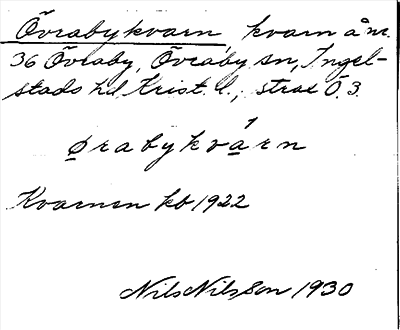 Övrabykvarn, kvarn å nr.
36 Övraby, Övraby sn, Ingel-
stads hd, Krist. l., strax Ö. 3.
ørabykvarn
Kvarnen kb 1922
Nils Nilsson 1930